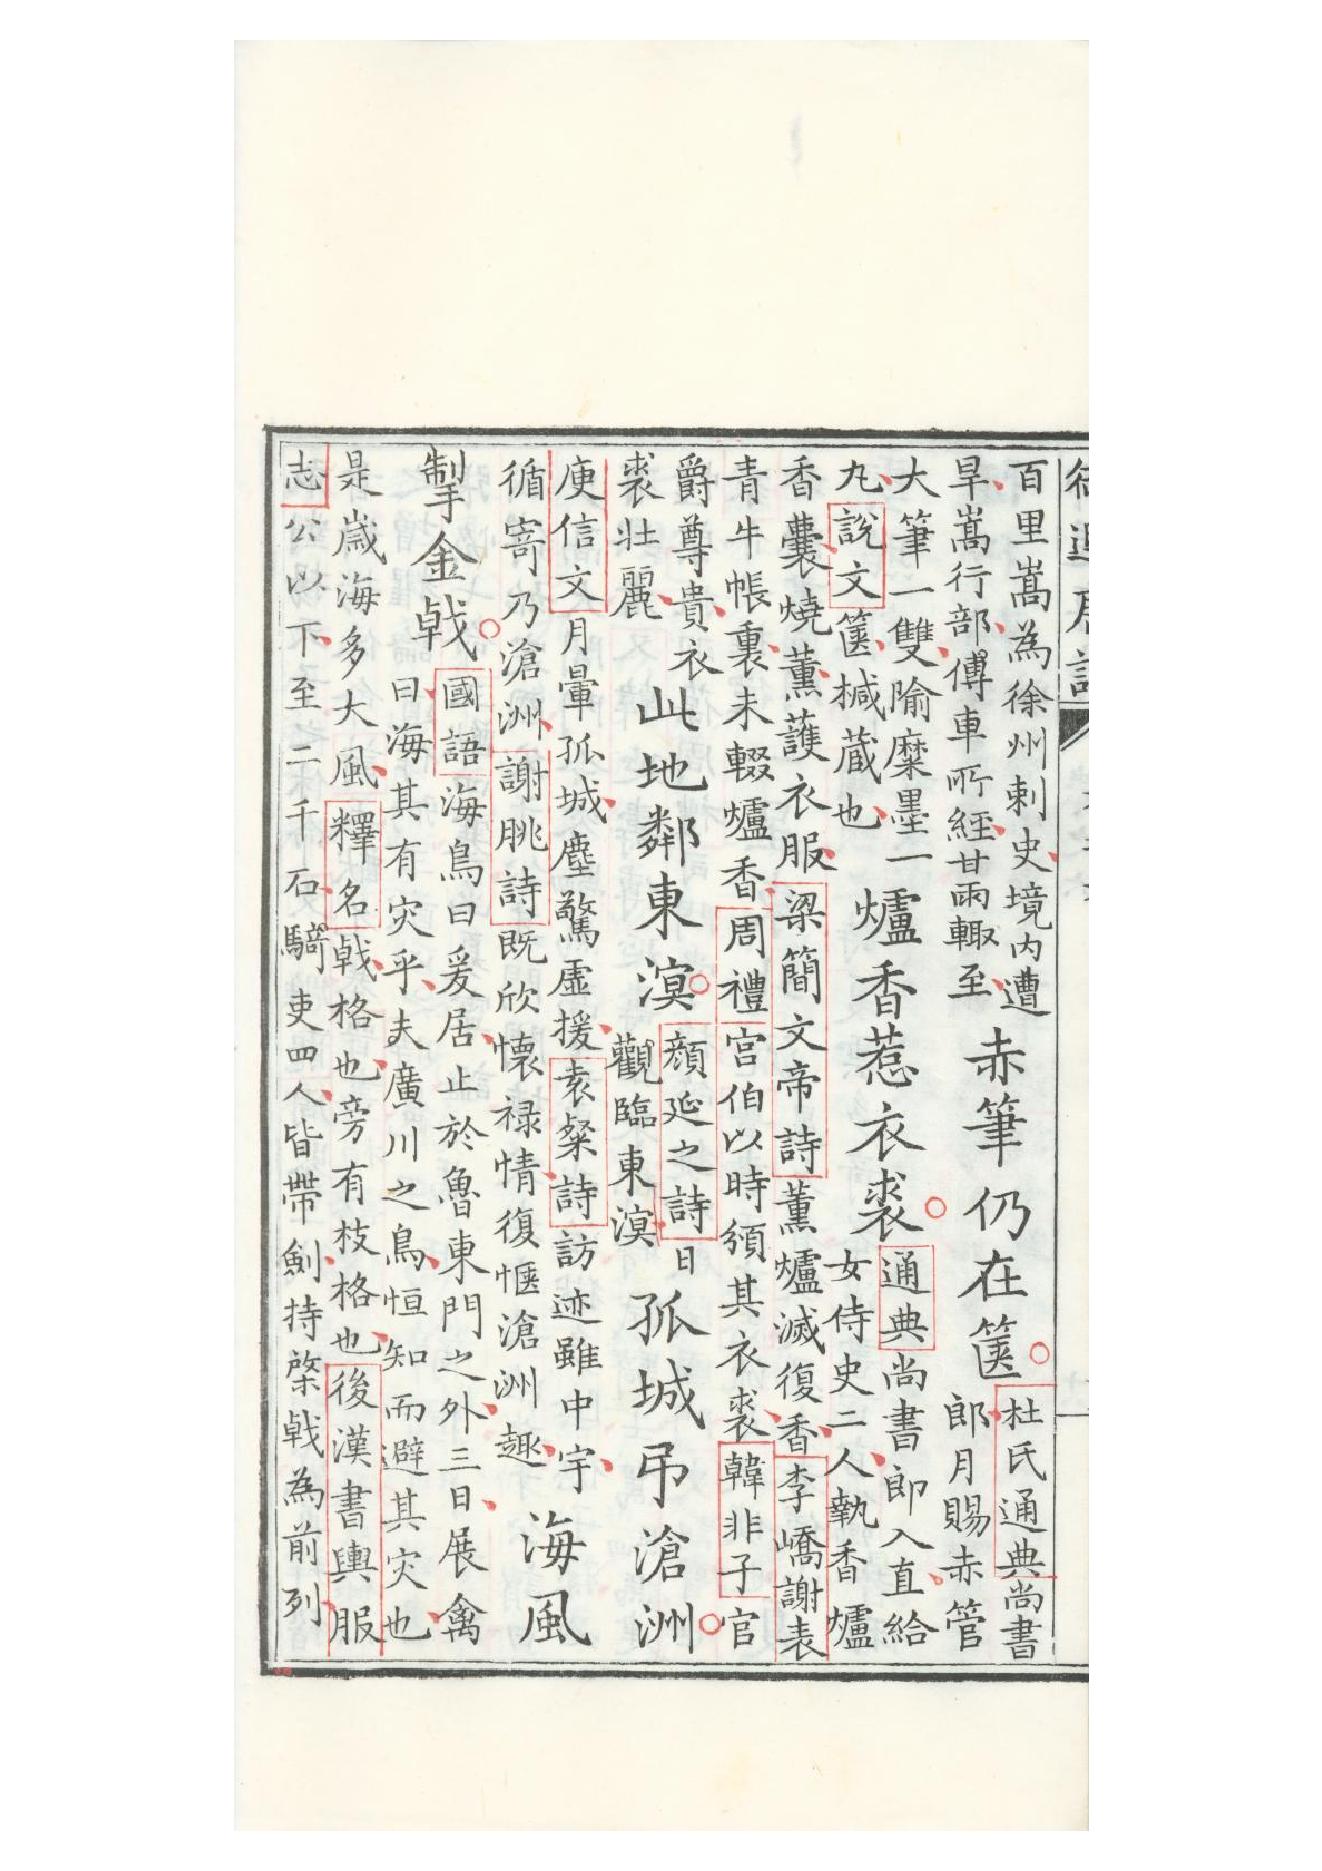 百里嵩為徐州刺史境内遭
旱嵩行部傅車所經甘雨輙至
赤筆仍在篋
杜氏通典尚書
郎月賜赤管
大筆一雙隃糜墨一
丸說文篋椷蔵也
爐香惹衣裘
通典尚書郎入直給
女侍史二人執香爐
香囊燒薰護衣服梁簡文帝詩薰爐滅復香李嶠謝表
青牛帳裏未輟爐香周禮宫伯以時頒其衣裘韓非子官
爵尊貴衣
裘壯麗
此地鄰東溟
顔延之詩日
觀臨東溟
孤城弔滄洲
庾信文月暈孤城塵驚虛援袁粲詩訪迹雖中宇
循寄乃滄洲謝眺詩既欣懷禄情復愜滄洲趣
海風
掣金戟
國語海鳥曰爰居止於魯東門之外三日展禽
曰海其有灾乎夫廣川之鳥恒知而避其灾也
是嵗海多大風釋名戟格也旁有枝格也後漢書輿服
志公以下至二千石騎吏四人皆帶劍持棨戟為前列